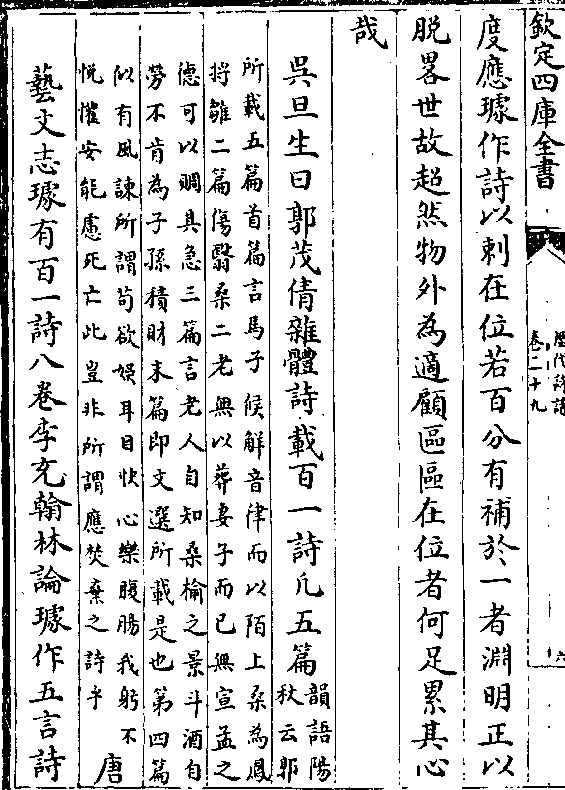 欽定四庫全書
歷代詩話
卷二十九
六
度應璩作詩以刺在位若百分有補於一者淵明正以
脱畧世故超然物外為適顧區區在位者何足累其心
哉
吳旦生曰郭茂倩雜體詩載百一詩凡五篇
韻語陽
秋云郭
所載五篇首篇言馬子侯解音律而以陌上桑為鳳
將雛二篇傷翳桑二老無以葬妻子而已無宣孟之
徳可以賙其急三篇言老人自知桑榆之景斗酒自
勞不肯為子孫積財末篇即文選所載是也第四篇
似有風諫所謂茍欲娯耳目快心樂腹腸我躬不
悦懽安能慮死亡此豈非所謂應焚棄之詩乎
唐
藝文志璩有百一詩八卷李充翰林論璩作五言詩